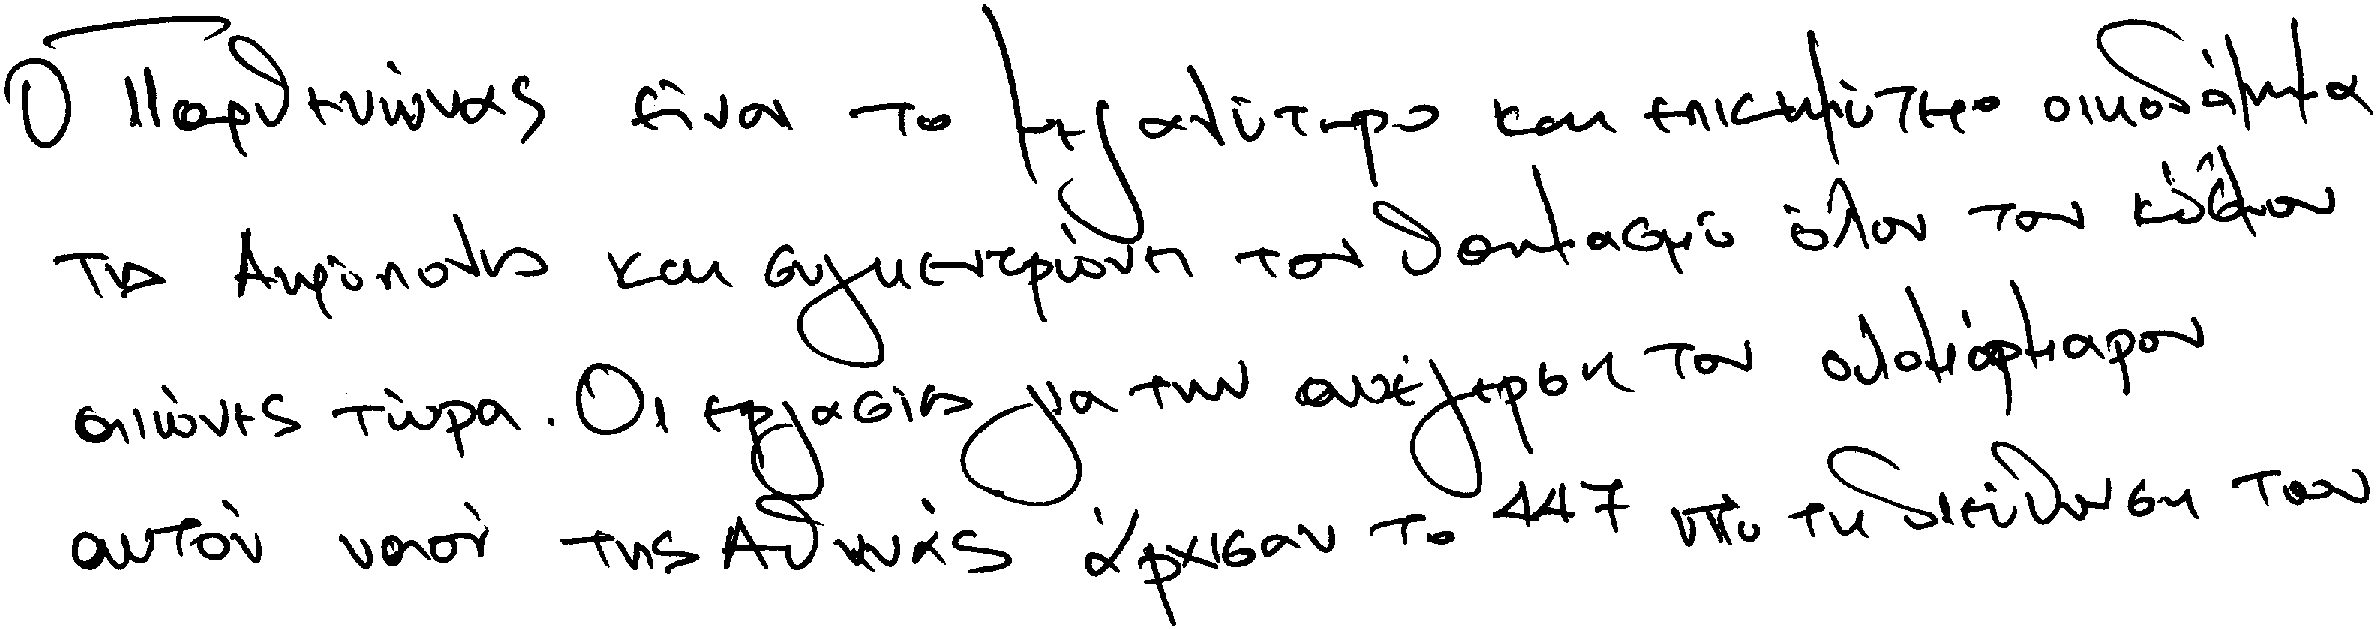 Ο Παρθενώνας είναι το μεγαλύτερο και επισημότερο οικοδόμημα
της Ακρόπολης και συγκεντρώνει τον θαυμασμό όλου του κόσμου
αιώνες τώρα. Οι εργασίες για την ανέγερση του ολομάρμαρου
αυτού ναού της Αθηνάς άρχισαν το 447 υπό τη διεύθυνση του